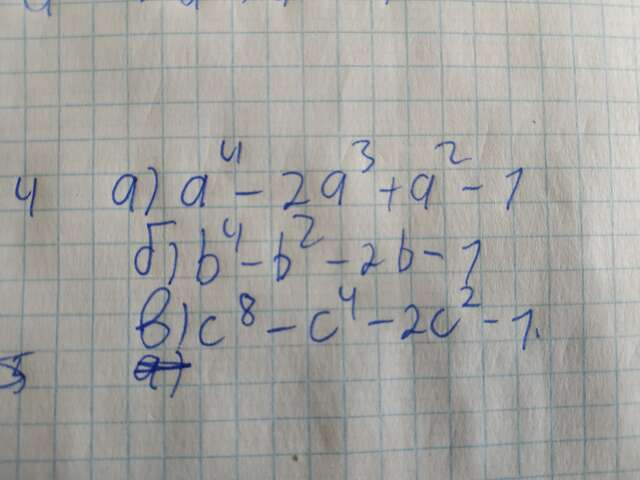 4 а) a⁴ - 2a³ + a² - 1
б) b⁴ - b² - 2b - 1
в) c⁸ - c⁴ - 2c² - 1.
5 а)